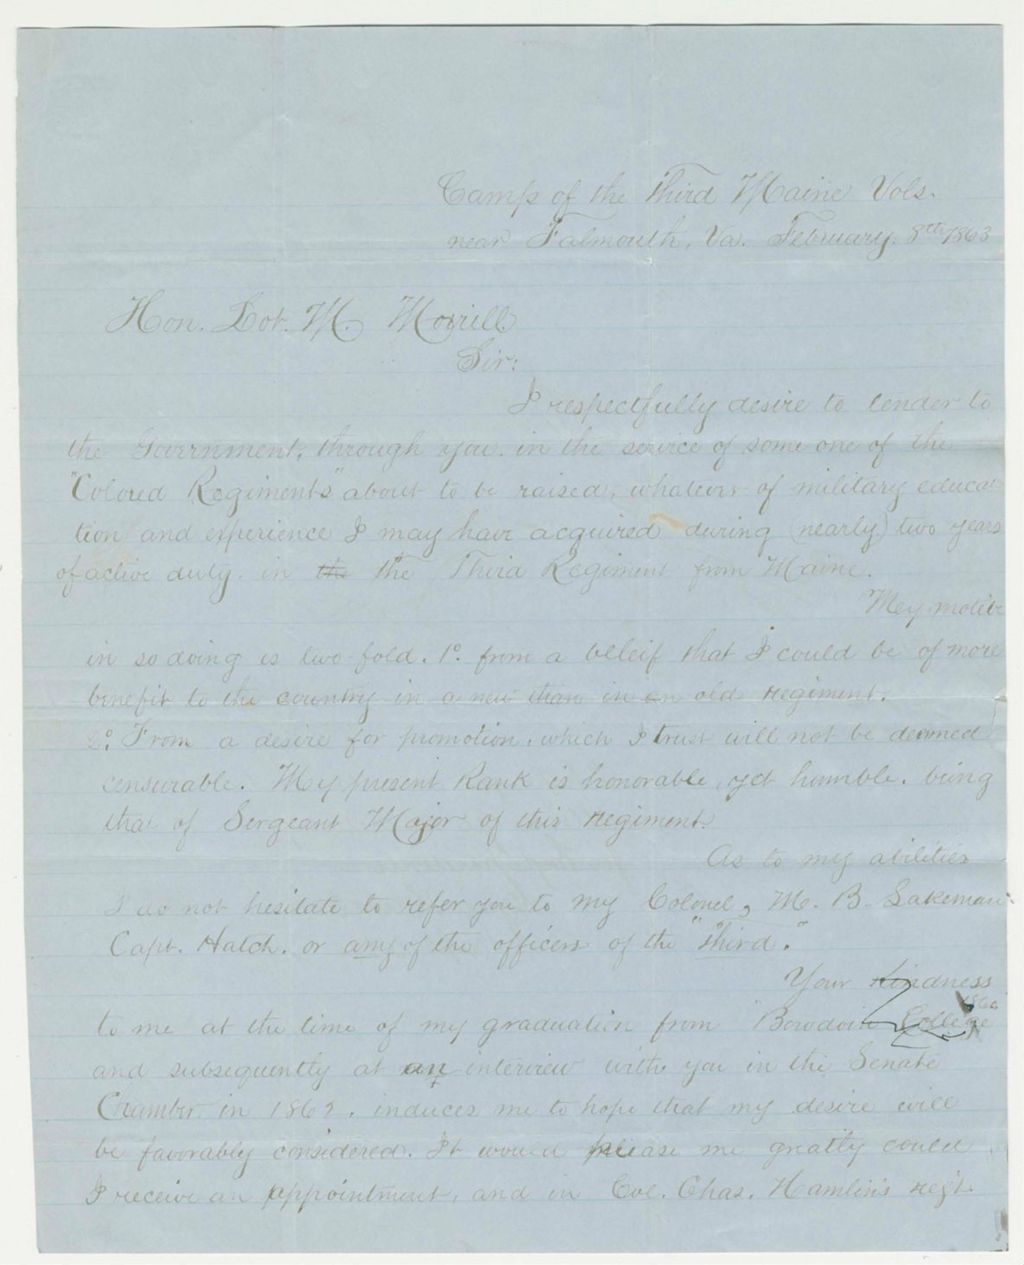 Camp of the Third Maine Vols.
near Falmouth, Va. February. 8th 1863
Hon. Lot. M. Morrill.
Sir:
I respectfully desire to tender to
the Government, through you. in the service of some one of the
"Colored Regiments" about to be raised, whatever of military educa-
tion and experience I may have acquired during (nearly) two years
of active duty. in the the Third Regiment from Maine.
My motive
in so doing is two fold. 1º. from a beleif that I could be of more
benefit to the country in a new than in an old regiment.
2º. From a desire for promotion, which I trust will not be deemed
censurable. My present Rank is honorable, yet humble. being
that of Sergeant Major of this regiment.
As to my abilities
I do not hesitate to refer you to my Colonel, M. B. Lakeman
Capt. Hatch. or any of the officers of the "Third."
Your kindness
1860
to me at the time of my graduation from Bowdoin College
and subsequently at an interview with you in the Senate
Chamber in 1862. induces me to hope that my desire will
be favorably considered. It would please me greatly could
I receive an appointment, and in Col. Chas. Hamlin's regt.